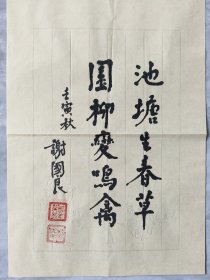 池塘生春草
園柳變鳴禽
壬寅秋
謝國良